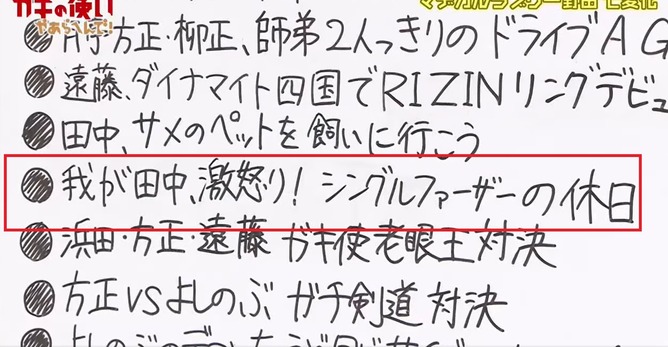 ガキの使い
やあらへんで!
●月亭方正・柳正、師弟2人っきりのドライブAG
●遠藤、ダイナマイト四国でRIZINリングデビュ
●田中、サメのペットを飼いに行こう
●我が田中、激怒り! シングルファーザーの休日
●浜田・方正・遠藤 ガキ使老眼王対決
●方正VSよしのぶ ガチ剣道対決